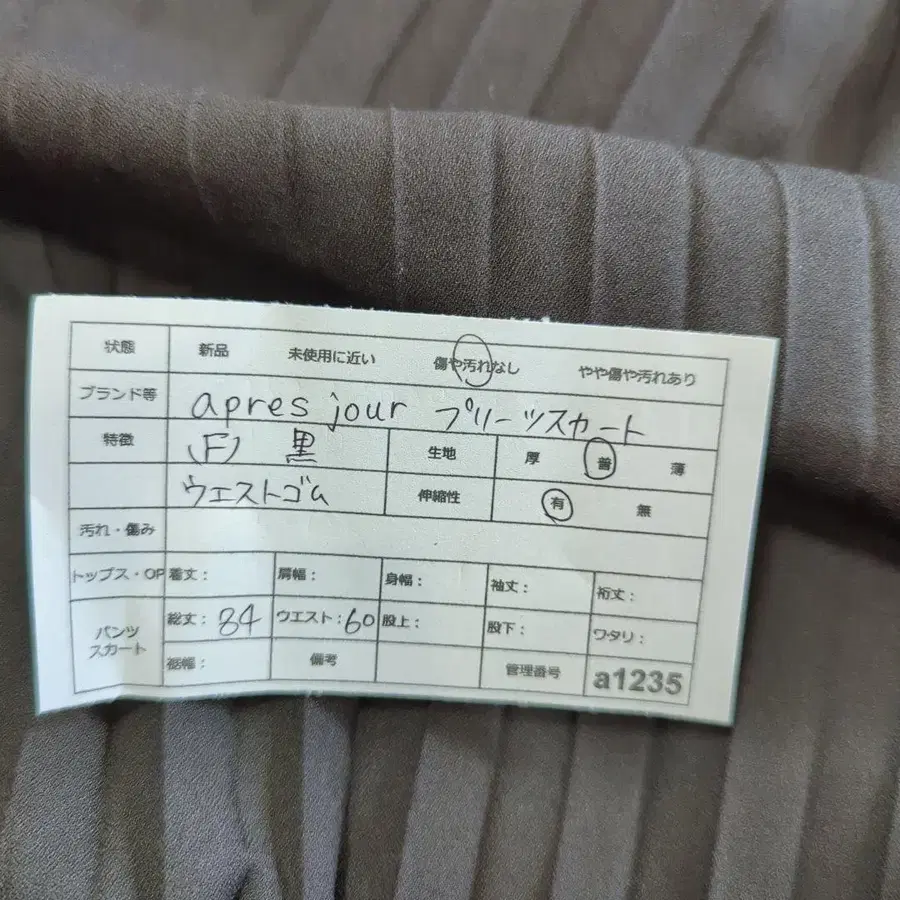 状態 新品 未使用に近い 傷や汚れなし やや傷や汚れあり
ブランド等 apres jour プリーツスカート
特徴 (F) 黒 生地 厚 普 薄
ウエストゴム 伸縮性 有 無
汚れ・傷み
トップス・OP 着丈: 肩幅: 身幅: 袖丈: 裄丈:
パンツ スカート 総丈: 84 ウエスト: 60 股上: 股下: ワタリ:
裾幅: 備考 管理番号 a1235